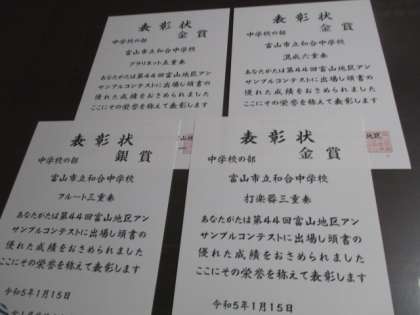 表彰状
金賞
中学校の部
富山市立和合中学校
クラリネット五重奏
あなたがたは第44回富山地区アン
サンブルコンテストに出場し頭書の
優れた成績をおさめられました
ここにその栄誉を称えて表彰します
表彰状
金賞
中学校の部
富山市立和合中学校
混成六重奏
あなたがたは第44回富山地区アン
サンブルコンテストに出場し頭書の
優れた成績をおさめられました
ここにその栄誉を称えて表彰します
表彰状
銀賞
中学校の部
富山市立和合中学校
フルート三重奏
あなたがたは第44回富山地区アン
サンブルコンテストに出場し頭書の
優れた成績をおさめられました
ここにその栄誉を称えて表彰します
令和5年1月15日
表彰状
金賞
中学校の部
富山市立和合中学校
打楽器三重奏
あなたがたは第44回富山地区アン
サンブルコンテストに出場し頭書の
優れた成績をおさめられました
ここにその栄誉を称えて表彰します
令和5年1月15日